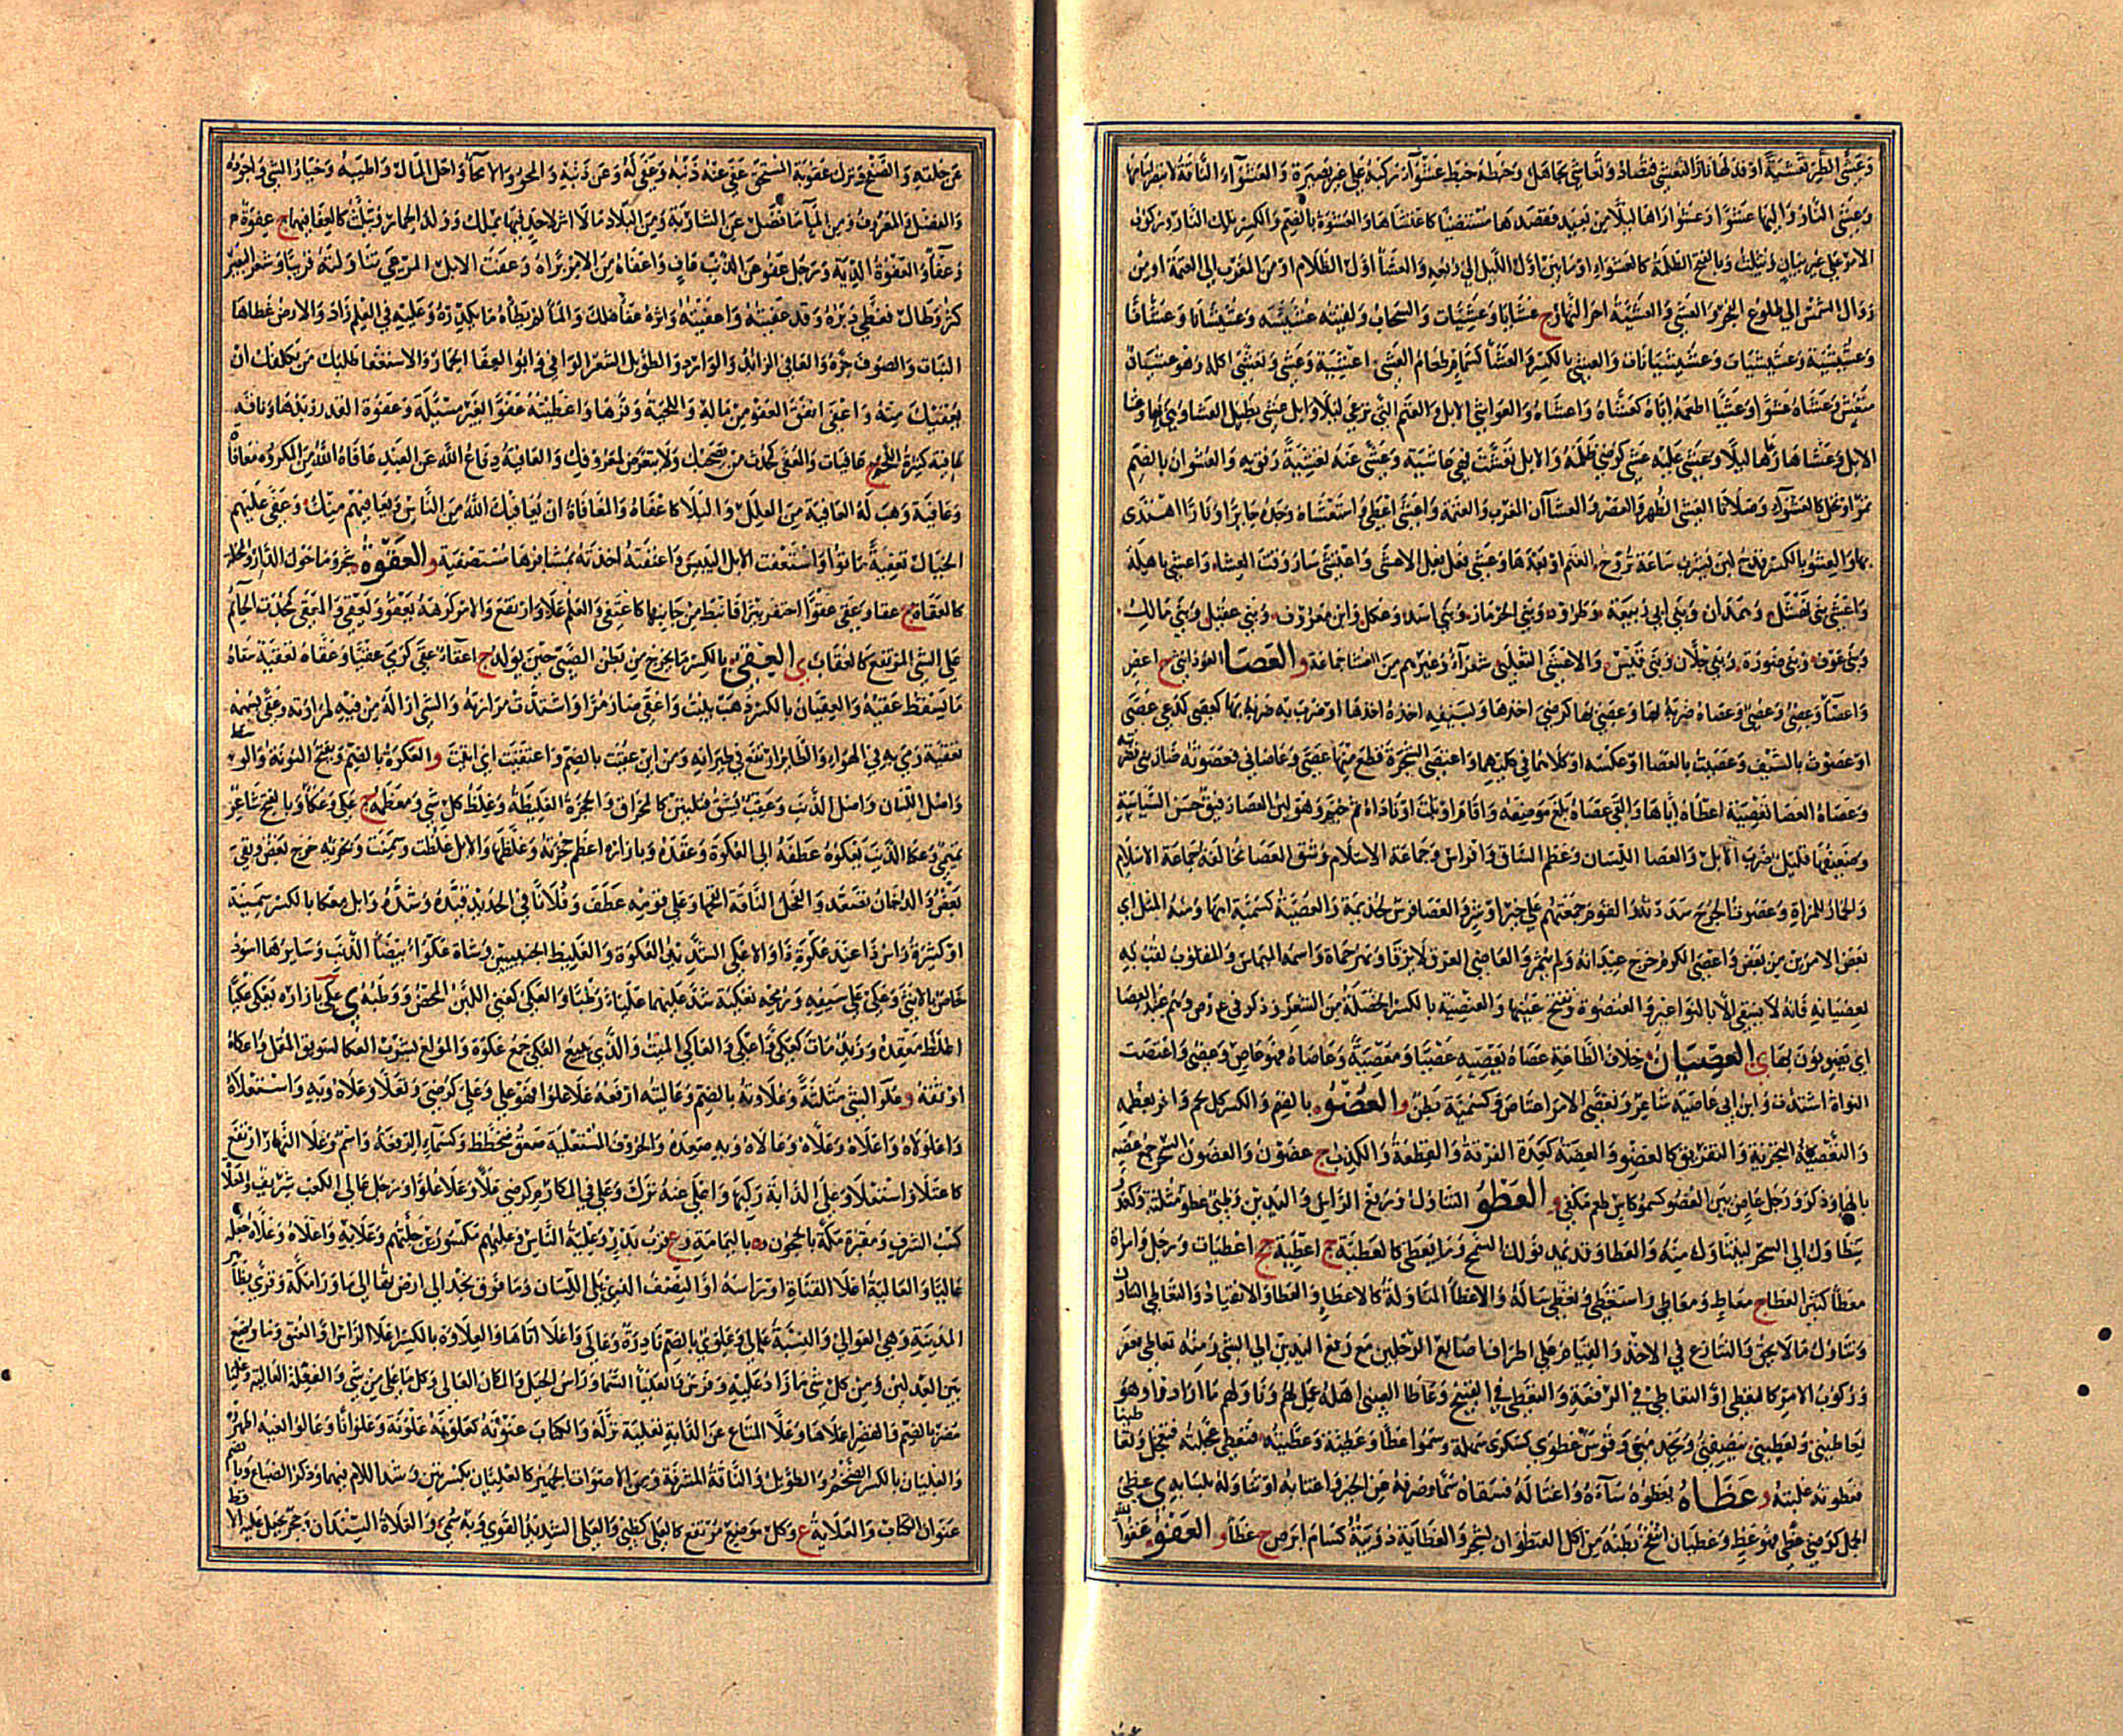 وعشى الطير تعشية اوقد لها نارا لتعشى فتصاد وتعاشى تجاهل وخبطه خبط عشواء ركبه على غير بصيرة والعشواء الناقة لا تبصر امامها
وعشى النار واليها عشوا وعشوا راها ليلا من بعيد فقصدها مستضيئا كاعتشاها والعشوة بالضم والكسر تلك النار وركوب
الامر على غير بيان ويثلث وبالفتح الظلمة كالعشواء او ما بين اول الليل الى ربعه والعشاء اول الظلام او من المغرب الى العتمة او من
زوال الشمس الى طلوع الفجر والعشي والعشية اخر النهار ج عشايا وعشيات والسحاب ولقيته عشيشية وعشيشانا وعشانا
وعشيشية وعشيشيات وعشيشيانات والعشي بالكسر والعشاء كسماء طعام العشي اعشية وعشى وتعشى اكله وهو عشيان
متعش وعشاه عشوا وعشيا اطعمه اياه كعشاه واعشاه والعواشي الابل والغنم التي ترعى ليلا وابل عشى يطيل العشاء
الابل وعشاها رعاها ليلا وعشى عليه عشى كرضى ظلمه والابل تعشت فهي عاشية وعشى عنه تعشية رفق به والعشوان بالضم
تمر او نخل كالعشواء وصلاتا العشى الظهر والعصر والعشاآن المغرب والعتمة واعشى اعطى واستعشاه وجده جايرا ونارا اهتدى
بها والعشو بالكسر قدح لبن يشرب ساعة تروح الغنم او بعدها وعشى فعل فعل الاعشى واعتشى سار وقت العشاء واعشى باهلة
واعشى بني نهشل وهمدان وبني ابي ربيعة وطرود وبني الحرماز وبني اسد وعكل وابن معروف وبني عقيل وبني مالك
وبني عوف وبني ضوزة وبني جلان وبني قيس والاعشى التغلبي شعراء وغيرهم من العشا جماعة و العصا العود انثى ج اعص
واعصاء وعصي وعصي وعصاه ضربه بها وعصي بها كرضي اخذها وبسيفه اخذه اخذها او ضرب به ضربه بها كعصى كدعى عصى
او عصوت بالسيف وعصيت بالعصا او عكسه او كلاهما في كليهما واعتصى الشجرة قطع منها عصى وعاصاني فعصوته ضاربني بها
وعصاه العصا تعصية اعطاه اياها والقى عصاه بلغ موضعه واقام او اثبت اوتاده ثم خيم وهو لين العصا رفيق حسن السياسة
وضعيفها قليل ضرب الابل والعصا اللسان وعظم الساق وافراس وجماعة الاسلام وشق العصا مخالفة جماعة الاسلام
والخمار للمراة وعصوت الجرح شددته والقوم جمعتهم على خير او شر والعصا فرس لجذيمة والعصية كسمية امها ومنه المثل اي
بعض الامر من بعض واعصى الكرم خرج عيدانه ولم يثمر والعاصي العرق لا يرقا ونهر حماة واسمه الميماس والمقلوب لقب به
لعصيانه فانه لا يسقى الا بالنواعير والعنصوة وتفتح عينها والعنصية بالكسر الخصلة من الشعر وذكر في ع ن ص وهم عبيد العصا
اي يضربون بها ي العصيان خلاف الطاعة عصاه يعصيه عصيا ومعصية وعاصاه فهو عاص وعصي واعتصت
النواة اشتدت وابن ابي عاصية شاعر وتعصى الامر اعتاص وكسمية بطن و العضو بالضم والكسر كل لحم وافر بعظمه
والتعضية التجزئة والتفريق كالعضو والعضة كعدة الفرقة والقطعة والكذب ج عضون والعضون السحر جمع عضه
بالهاء وذكر ورجل عاض بين العضو كسمو كاس طعم مكفي و العطو التناول ورفع الراس واليدين وظبي عطو مثلثة وكعدو
يتطاول الى الشجر ليتناول منه والعطا وقد يمد نولك السمح وما يعطى كالعطية ج اعطية جج اعطيات ورجل وامراة
معطاء كثير العطاء ج معاط ومعاطي واستعطى وتعطى ساله والاعطاء المناولة كالاعطاء والعطاء والانقياد والتعاطي التناول
وتناول ما لا يحق والتنازع في الاخذ والقيام على اطراف اصابع الرجلين مع رفع اليدين الى الشيء ومنه تعاطى فعقر
وركوب الامر كالتعطي او التعاطي في الرفعة والتعطي في القبيح وعاطى الصبي اهله عمل لهم وناولهم ما ارادوا وهو
يعاطيني ويعطيني ينصفني ويخدمني وقوس عطوى كسكرى سهلة وسموا عطاء وعطية وعطيته فتعطى عجلته فتعجل وتعاطينا
فعطوته غلبته و عظاه يعظوه ساءه واغتاله فسقاه سما وصرفه عن الخير واغتابه او تناوله بلسانه ي عظى
الجمل كرضي عظى فهو عظ وعظيان انتفخ بطنه من اكل العنظوان لشجر والعظاية دويبة كسام ابرص ج عظاء و العفو عفو الله
عن خلقه والصفح وترك عقوبة المستحق عفى عنه ذنبه وعفى له وعن ذنبه والمحو والامحاء واحل المال واطيبه وخيار الشيء واجوده
والفضل والمعروف ومن الماء ما فضل عن الشاربة ومن البلاد ما لا اثر لاحد فيها بملك وولد الحمار ويثلث كالعفا فيهما ج عفوة
وعفاء والعفوة الدية ورجل عفو عن الذنب عاف واعفاه من الامر براه وعفت الابل المرعى تناولته قريبا وشعر البعير
كثر وطال فغطى دبره وقد عفيته واعفيته واثره عفاء هلك والماء لم يطاه ما يكدره وعليه في العلم زاد والارض غطاها
النبات والصوف جزه والعافي الرائد والوارد والطويل الشعر الوافي وابو العفا الحمار والاستعفا طلبك من يكلفك ان
يعفيك منه واعفى انفق العفو من ماله واللحية وفرها واعطيته عفوا بغير مسئلة وعفوة القدر زبدها وناقة
عافية كثيرة اللحم ج عافيات والمعفي كمحدث من يصحبك ولا يتعرض لمعروفك والعافية دفاع الله عن العبد عافاه الله من المكروه معافاة
وعافية وهب له العافية من العلل والبلاء كاعفاه والمعافاة ان يعافيك الله من الناس ويعافيهم منك وعفى عليهم
الخبال تعفية ماتوا واستعفت الابل اليبيس واعتفته اخذته بمشافرها مستصفية و العقوة شجر وما حول الدار والمحلة
كالعقاة ج عقا وعقى عقوا احتفر بئرا فانبط من جانبها كاعتقى والعلم علا وارتفع والامر كرهه يعقو ويعقي والمعقى كمحدث الحائم
على الشيء المرتفع كالعقاب ي العقي بالكسر ما يخرج من بطن الصبي حين يولد ج اعقاء عقى كرمى عقيا وعقاه تعقية سقاه
ما يسقط عقيه والعقيان بالكسر ذهب ينبت واعقى صار مرا واشتدت مرارته والشيء ازاله من فيه لمرارته وعقى بسهمه
تعقية رمى به في الهواء والطائر ارتفع في طيرانه ومن اين عقيت بالضم واعتقيت اي اتيت و العكوة بالضم وتفتح النونة والوسط
واصل اللسان واصل الذنب وعقب يشق فتلين كالمخراق والحجزة الغليظة وغلظ كل شيء ومعظمه ج عكى وعكاء وبالفتح شاعر
تميمي وعكا الذنب يعكوه عطفه الى العكوة وعقده وبازاره اعظم حجزته وغلظها والابل غلظت وسمنت وبخرئه خرج بعض وبقي
بعض والدخان تصعد والفحل الناقة القحها وعلى قومه عطف وفلانا في الحديد قيده وشده وابل معكا بالكسر سمينة
او كثيرة وراس ذا عند عكوة ذا والاعكى الشديد العكوة والغليظ الجنبين وشاة عكواء بيضاء الذنب وسايرها اسود
خاص بالانثى وعكى على سيفه ورمحه تعكية شد عليهما علباء رطبا والعكي كغني اللبن المحض ووطبه ي عكى بازاره يعكي عكيا
اغلظ معقده وزيد مات كعكى واعكى والعاكي الميت والذي يبيع العكى جمع عكوة والمولع بشرب العكا لسويق المقل واعكاه
اوثقه و علو الشيء مثلثة وعلاوته بالضم وعاليته ارفعه علا علوا فهو علي وعلي كرضي وتعلا وعلاه وبه واستعلاه
واعلولاه واعلاه وعلاه وعالاه وبه صعده والحروف المستعلية صعق مخضظ وكسماء الرفعة واسم وعلا النهار ارتفع
كاعتلا واستعلا وعلى الدابة ركبها واعلى عنه نزل وعلي في المكارم كرضي علاء وعلا علوا ورجل عالي الكعب شريف والعلا
كسب الشرف ومقبرة مكة بالحجون و ة باليمامة و ع قرب بدر وعلية الناس وعليهم مكسورين جلتهم وعلا به واعلاه وعلاه جعله
عاليا والعالية اعلا القناة او راسه او النصف الذي يلي السنان وما فوق نجد الى ارض تهامة الى ما وراء مكة وقرى بظاهر
المدينة وهي العوالي والنسبة عالي وعلوي بالضم نادرة وعالى واعلا اتاها والعلاوة بالكسر اعلا الراس او العنق وما وضع
بين العدلين ومن كل شيء ما زاد عليه وفرس والعليا السماء وراس الجبل والمكان العالي وكل ما علا من شيء والفعلة العالية وعليا
مضر بالضم والقصر اعلاها وعلا المتاع عن الدابة تعلية نزله والكتاب عنونه كعلونه علونة وعلوانا وعالوا نعيه اظهروه
والعليان بالكسر الضخم والطويل والناقة المشرفة ومن الاصوات الجهير كالعليان بكسرتين وشد اللام فيهما وذكر الضباع وبالضم
عنوان الكتاب والعلاية ع وكل موضع مرتفع كالعلى كظبي والعلى الشديد القوي وبه سمي والعلاة السندان وحجر يجعل عليه الاقط